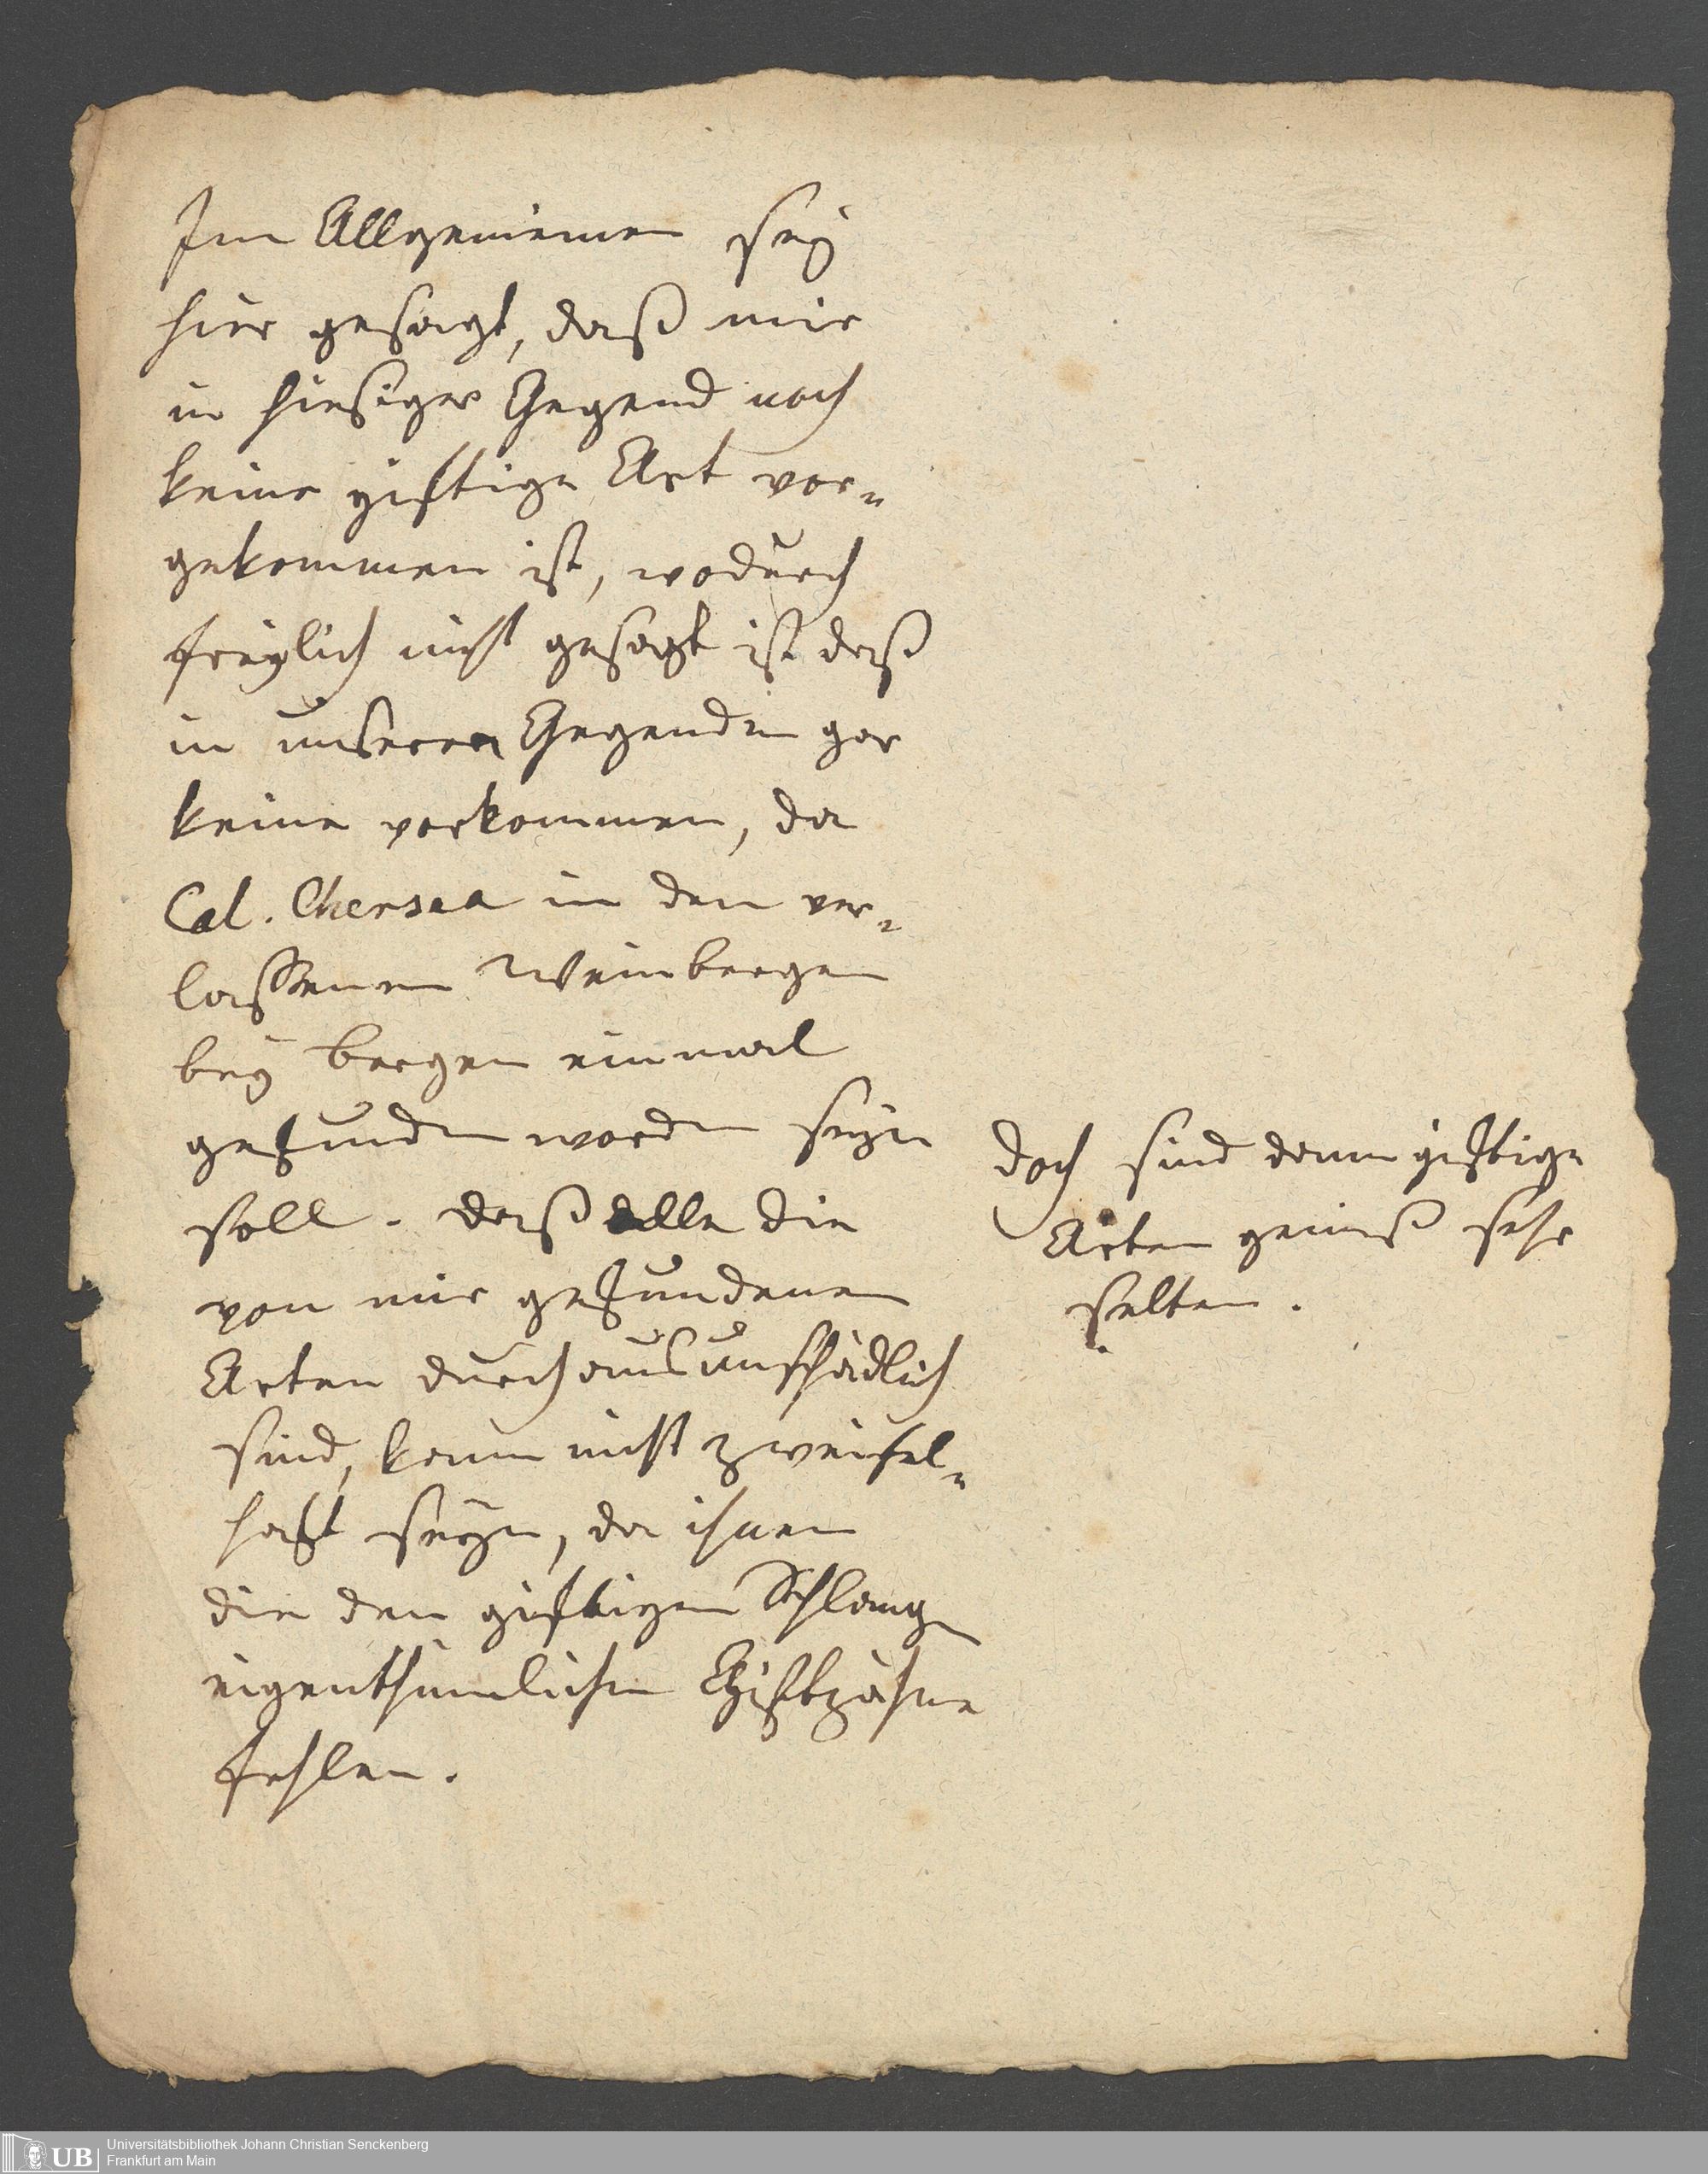 Im Allgemeinen sey
hier gesagt, daß mir
in hiesiger Gegend noch
keine giftige Art vor-
gekommen ist, wodurch
freylich nicht gesagt ist daß
in unseren Gegenden gar
keine vorkommen, da
Col. Chersea in den ver-
lassenen Weinbergen
bey Bergen einmal
gefunden worden seyn
soll. daß alle die
von mir gefundenen
Arten durchaus unschädlich
sind, kann nicht zweifel-
haft seyn, da ihnen
die den giftigen Schlangen
eigenthümlichen Giftzähne
fehlen.
doch sind dann giftige
Arten gewiß sehr
selten.
UB
Universitätsbibliothek Johann Christian Senckenberg
Frankfurt am Main